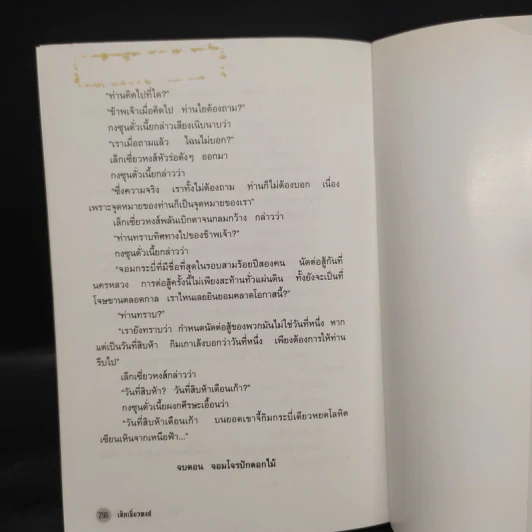 "ท่านคิดไปที่ใด?"
"ข้าพเจ้าเมื่อคิดไป ท่านไยต้องถาม?"
กงซุนตั่วเนี้ยกล่าวเสียงเนิบนาบว่า
"เราเมื่อถามแล้ว ไฉนไม่บอก?"
เล็กเซี่ยวหงส์หัวร่อดังๆ ออกมา
กงซุนตั่วเนี้ยกล่าวว่า
"ซึ่งความจริง เราทั้งไม่ต้องถาม ท่านก็ไม่ต้องบอก เนื่อง
เพราะจุดหมายของท่านก็เป็นจุดหมายของเรา"
เล็กเซี่ยวหงส์พลันเบิกตาจนกลมกว้าง กล่าวว่า
"ท่านทราบทิศทางไปของข้าพเจ้า?"
กงซุนตั่วเนี้ยกล่าวว่า
"จอมกระบี่ที่มีชื่อที่สุดในรอบสามร้อยปีสองคน นัดต่อสู้กันที่
นครหลวง การต่อสู้ครั้งนี้ไม่เพียงสะท้านทั่วแผ่นดิน ทั้งยังจะเป็นที่
โจษขานตลอดกาล เราไหนเลยยินยอมคลาดโอกาสนี้?"
"ท่านทราบ?"
"เรายังทราบว่า กำหนดนัดต่อสู้ของพวกมันไม่ใช่วันที่หนึ่ง หาก
แต่เป็นวันที่สิบห้า กิมเกาเล้งบอกว่าวันที่หนึ่ง เพียงต้องการให้ท่าน
รีบไป"
เล็กเซี่ยวหงส์กล่าวว่า
"วันที่สิบห้า? วันที่สิบห้าเดือนเก้า?"
กงซุนตั่วเนี้ยผงกศีรษะเอื้อนว่า
"วันที่สิบห้าเดือนเก้า บนยอดเขาจี้กิมกระบี่เดียวหยดโลหิต
เซียนเหินจากเหนือฟ้า..."
จบตอน จอมโจรปักดอกไม้
298 เล็กเซี่ยวหงส์